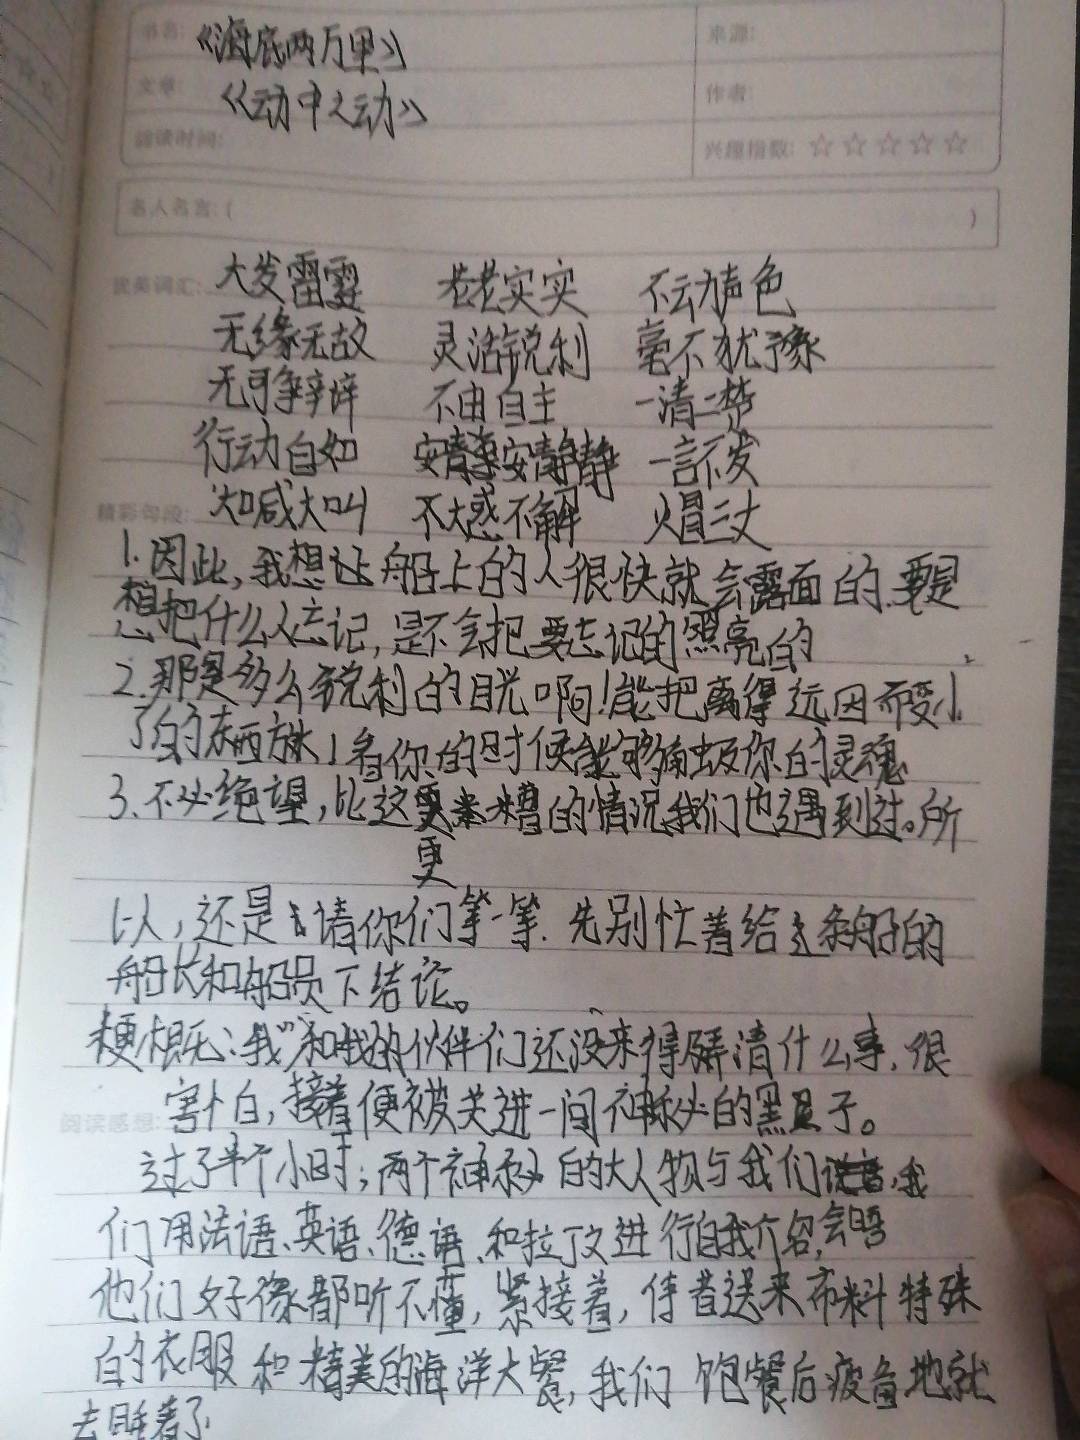 书名:《海底两万里》 来源:
文章:《动中之动》 作者:
阅读时间: 兴趣指数:☆☆☆☆☆
名人名言:( )
优美词汇: 大发雷霆 老老实实 不动声色
无缘无故 灵活锐利 毫不犹豫
无可争辩 不由自主 一清二楚
行动自如 安静安静静 一言不发
精彩句段: 大喊大叫 不大惑不解 火冒三丈
1.因此,我想让船上的人很快就会露面的.要是
想把什么人忘记,是不会把要忘记的照亮的
2.那是多么锐利的目光啊!能把离得远因而变小
了的东西放大!看你的时候能够穿透你的灵魂
3.不必绝望,比这更糟的情况我们也遇到过。所
更
以,还是请你们等一等.先别忙着给这条船的
船长和船员下结论。
梗概:“我”和我的伙伴们还没来得及弄清什么事,很
害怕,接着便被关进一间神秘的黑屋子。
阅读感想:
过了半个小时,两个神秘的大人物与我们,我
们用法语、英语、德语、和拉丁文进行自我介绍,
他们好像都听不懂,紧接着,侍者送来布料特殊
的衣服和精美的海洋大餐,我们饱餐后疲惫地就
去睡着了